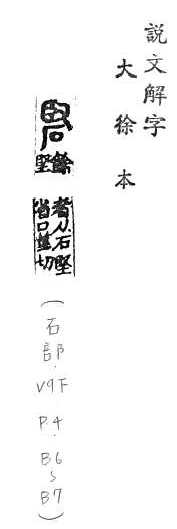 説文解字
大徐本
硻 餘堅
者从石堅
省口莖切
(石部, V9F P.4. B6~B7)